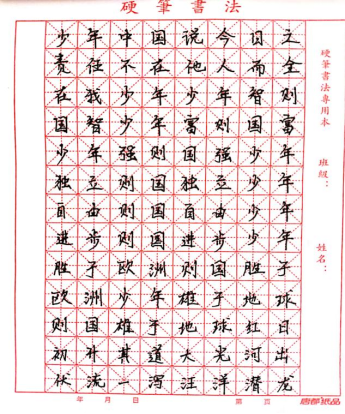 硬筆書法
少年中国说今日之
责任不在他人而全
在我少年少年智则
国智少年富则国富
少年强则国强少年
独立则国独立少年
自由则国自由少年
进步则国进步少年
胜于欧洲则国胜于
欧洲少年雄于地球
则国雄于地球红日
初升其道大光河出
伏流一泻汪洋潜龙
硬筆書法專用本
班級：
姓名：
年 月 日
第 頁